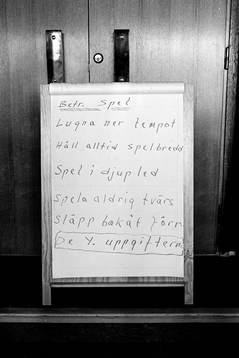 Betr. Spel
Lugna ner tempot
Håll alltid spelbredd
Spel i djupled
Spela aldrig tvärs
Släpp bakåt förr
De Y. uppgiftern